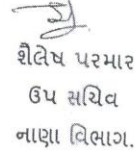 શૈલેષ પરમાર
ઉપ સચિવ
નાણા વિભાગ